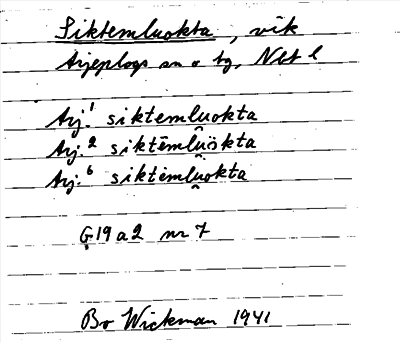 Siktemluokta, vik
Arjeplogs sn o tg, Nbt l
Arj.¹ siktemlu̯okta
Arj.² siktēmlu̯ökta
Arj.⁶ siktėmlu̯okta
G19a2 nr 7
Bo Wickman 1941